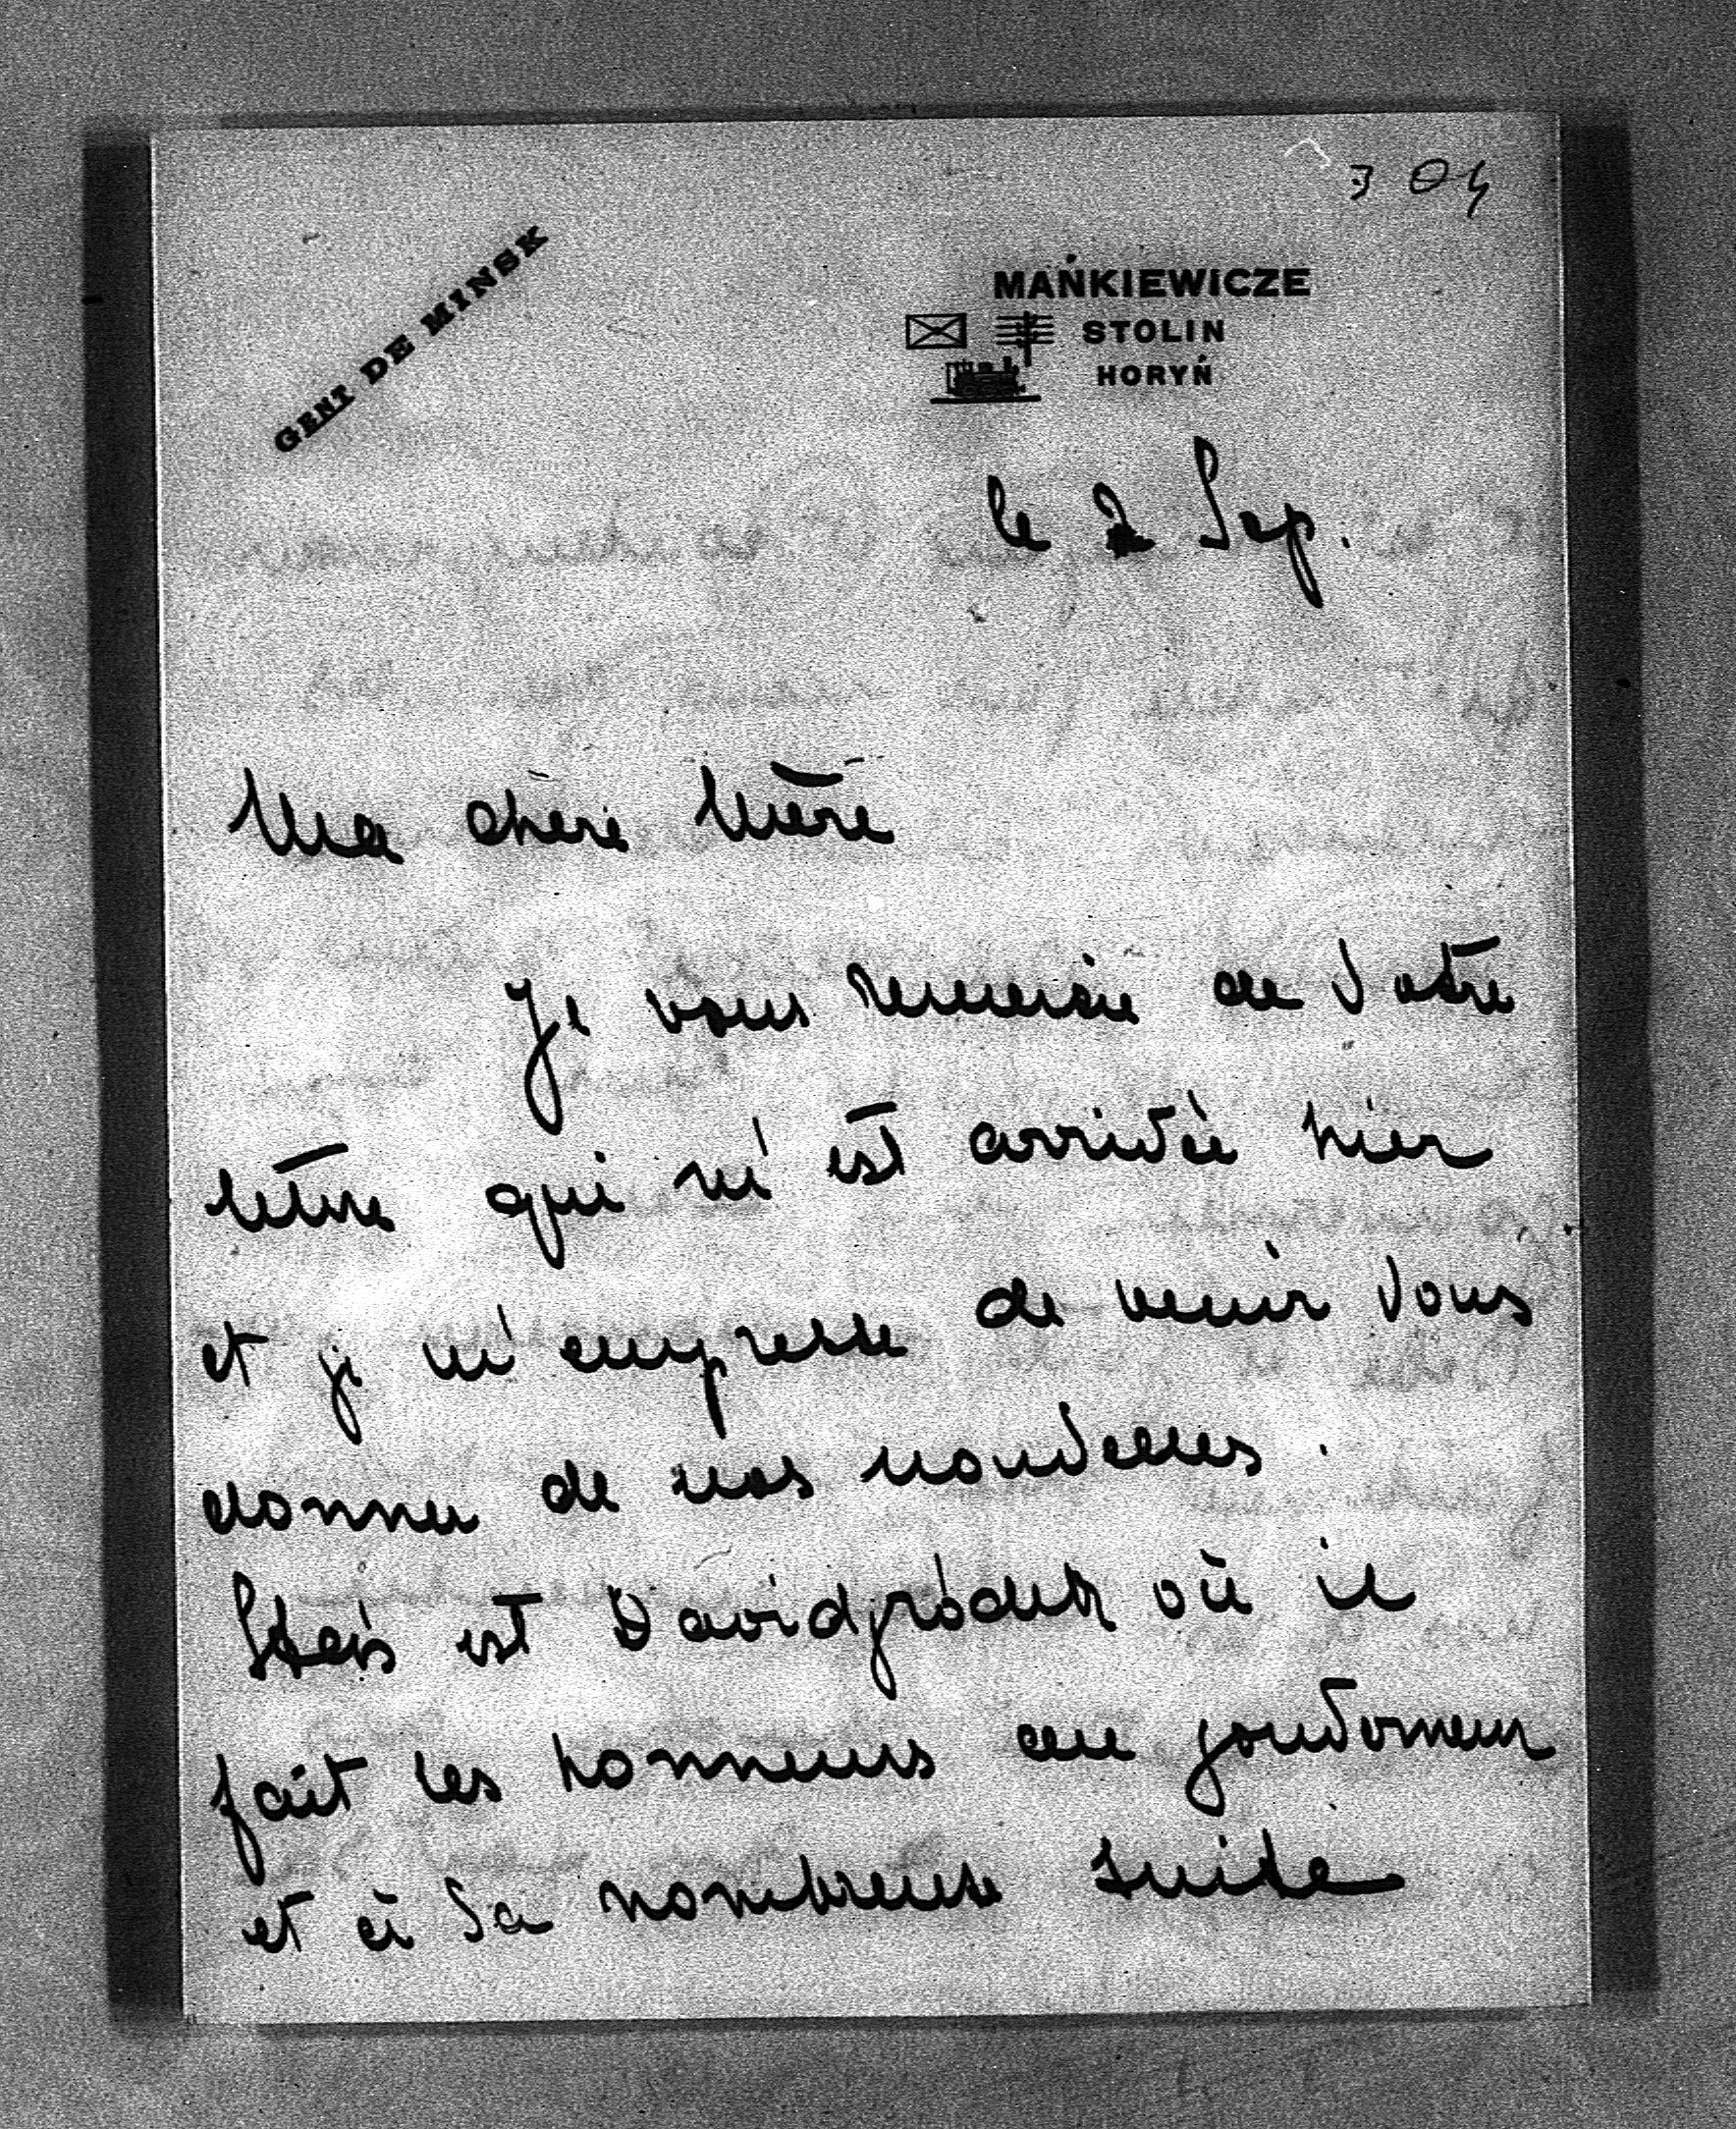 304
GENT DE MINSK
MAŃKIEWICZE
STOLIN
HORYŃ
le 2 Sep.
Ma chère Mère
Je vous remercie de Votre
lettre qui m'est arrivée hier
et je m'empresse de venir Vous
donner de nos nouvelles.
Staś est Davidgródek où il
fait les honneurs au gouverneur
et à Sa nombreuse suite